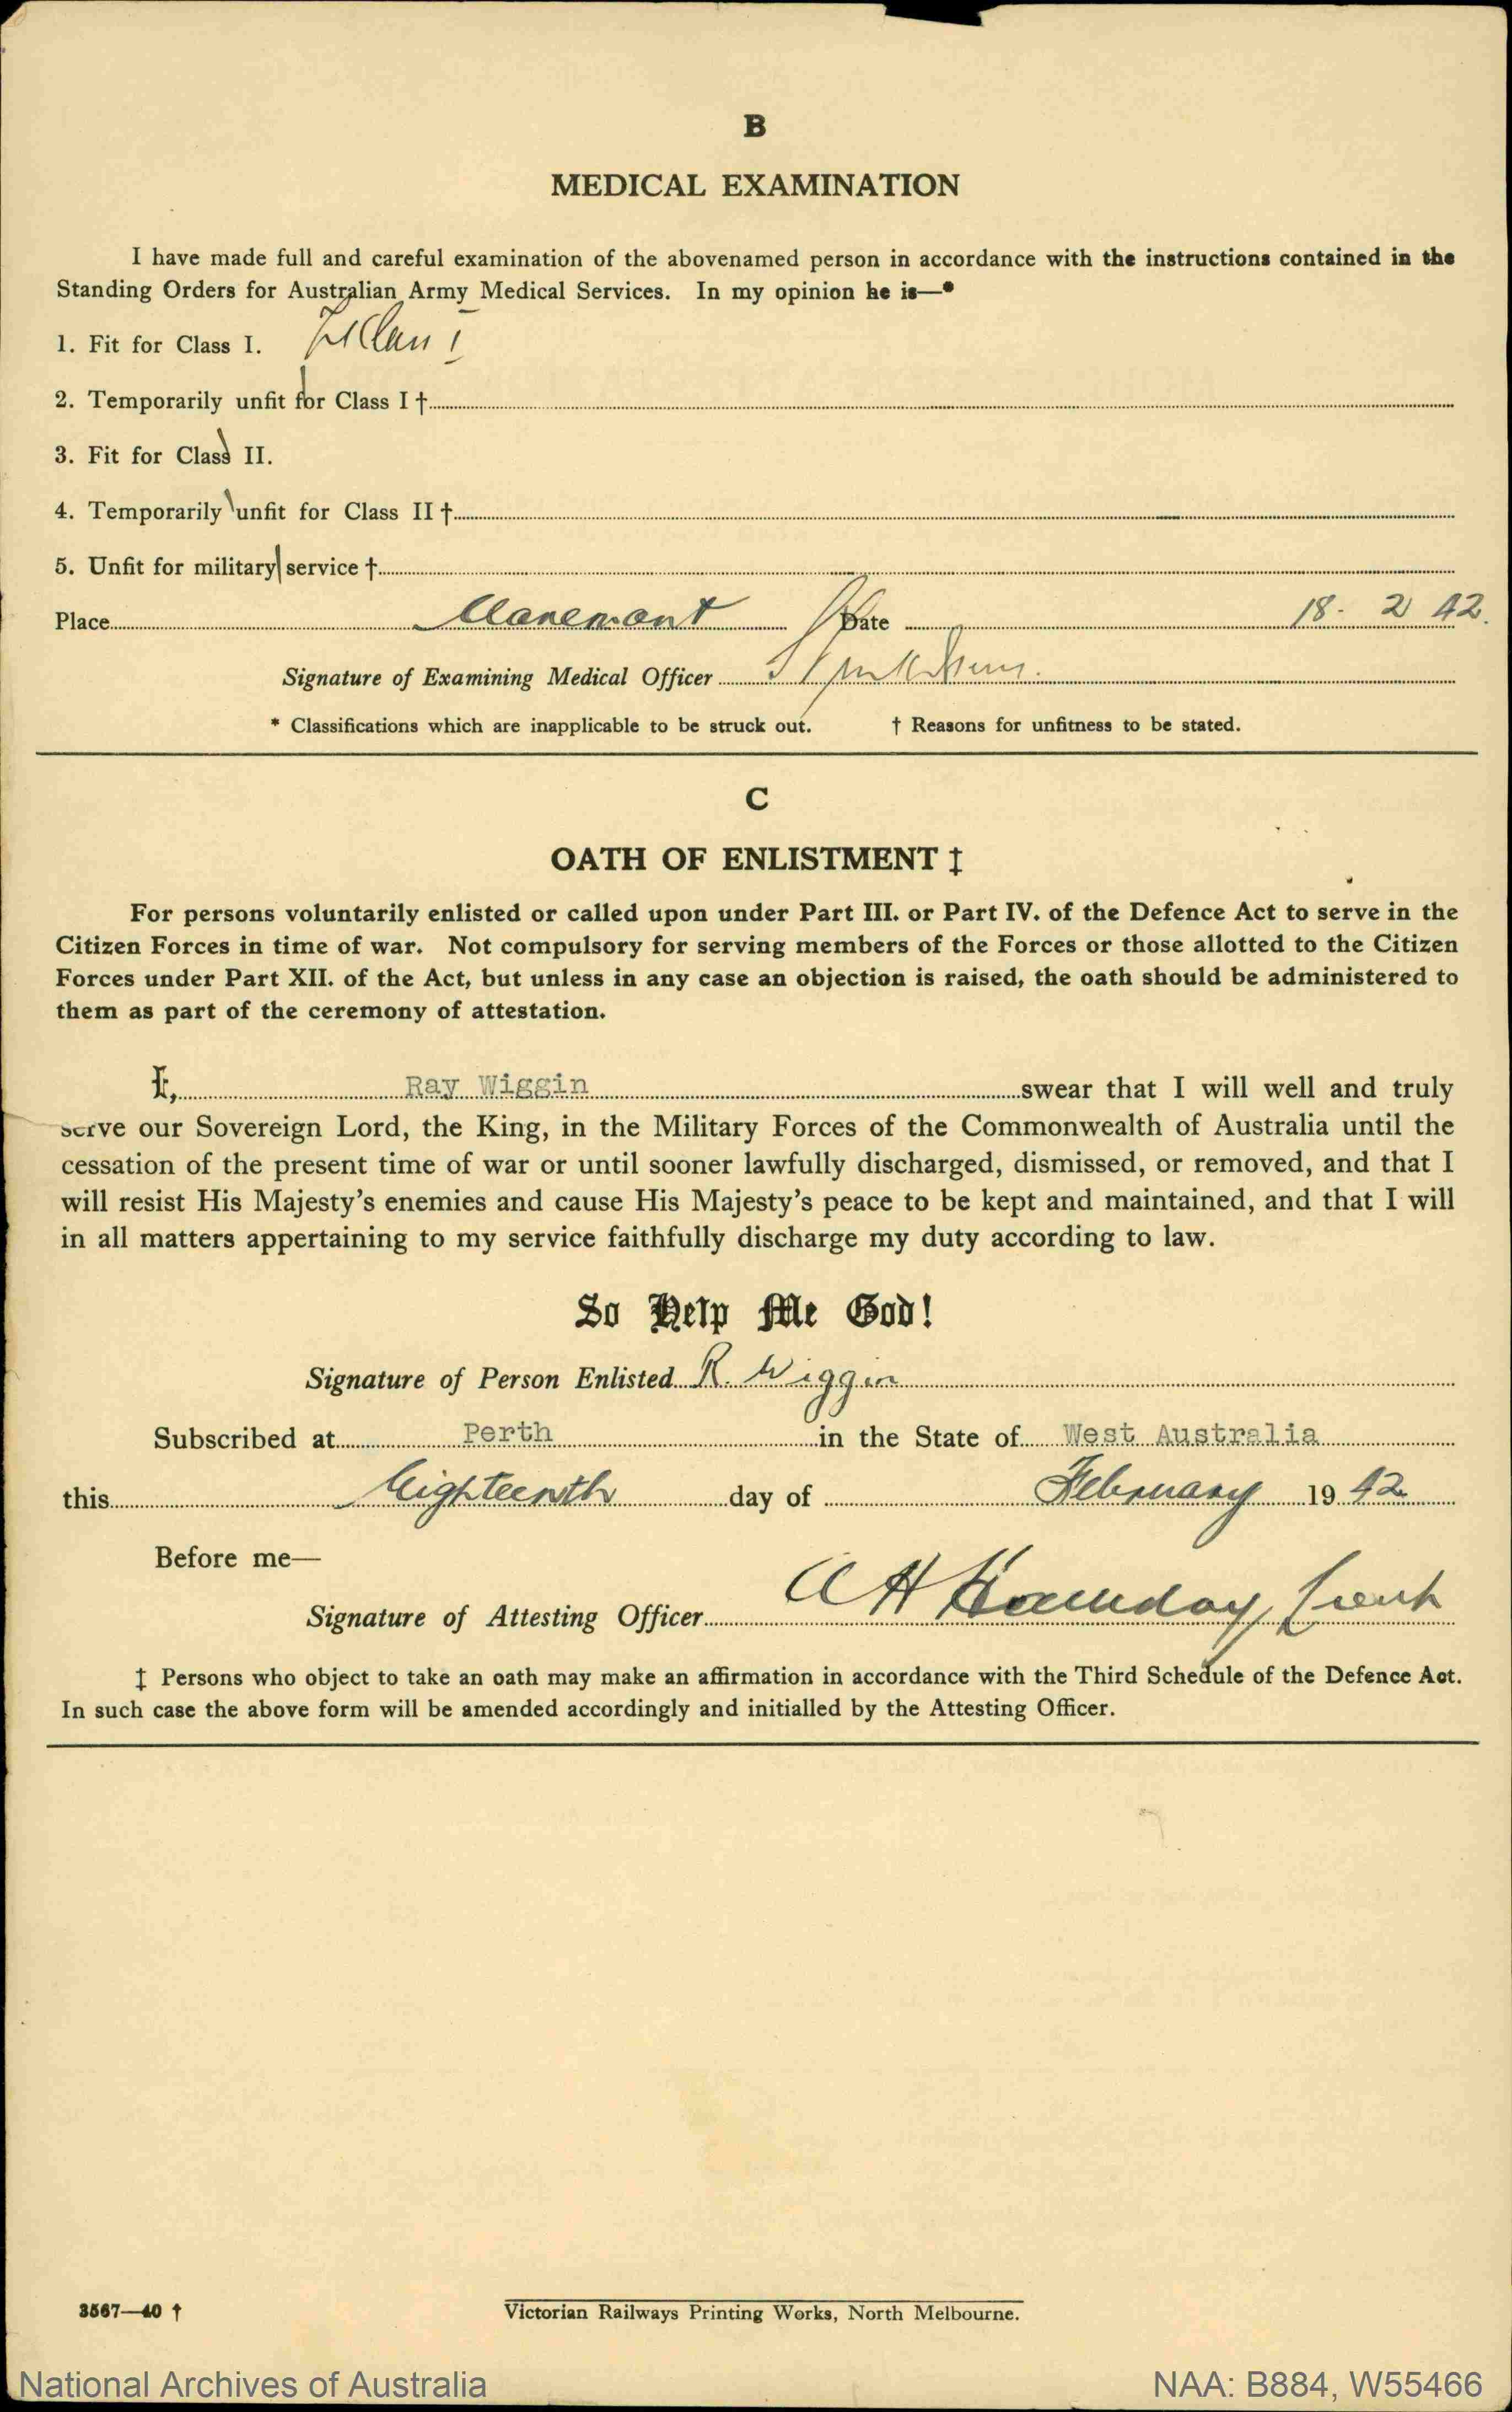 B
MEDICAL EXAMINATION
I have made full and careful examination of the abovenamed person in accordance with the instructions contained in the
Standing Orders for Australian Army Medical Services. In my opinion he is—*
1. Fit for Class I. Fit Class I
2. Temporarily unfit for Class I †
3. Fit for Class II.
4. Temporarily unfit for Class II †
5. Unfit for military service †
Place Claremont Date 18. 2 42.
Signature of Examining Medical Officer
* Classifications which are inapplicable to be struck out. † Reasons for unfitness to be stated.
C
OATH OF ENLISTMENT ‡
For persons voluntarily enlisted or called upon under Part III. or Part IV. of the Defence Act to serve in the
Citizen Forces in time of war. Not compulsory for serving members of the Forces or those allotted to the Citizen
Forces under Part XII. of the Act, but unless in any case an objection is raised, the oath should be administered to
them as part of the ceremony of attestation.
I, Ray Wiggin swear that I will well and truly
serve our Sovereign Lord, the King, in the Military Forces of the Commonwealth of Australia until the
cessation of the present time of war or until sooner lawfully discharged, dismissed, or removed, and that I
will resist His Majesty's enemies and cause His Majesty's peace to be kept and maintained, and that I will
in all matters appertaining to my service faithfully discharge my duty according to law.
So Help Me God!
Signature of Person Enlisted R. Wiggin
Subscribed at Perth in the State of West Australia
this Eighteenth day of February 19 42
Before me—
Signature of Attesting Officer A H Lieut
‡ Persons who object to take an oath may make an affirmation in accordance with the Third Schedule of the Defence Act.
In such case the above form will be amended accordingly and initialled by the Attesting Officer.
3567—40 †
Victorian Railways Printing Works, North Melbourne.
National Archives of Australia NAA: B884, W55466